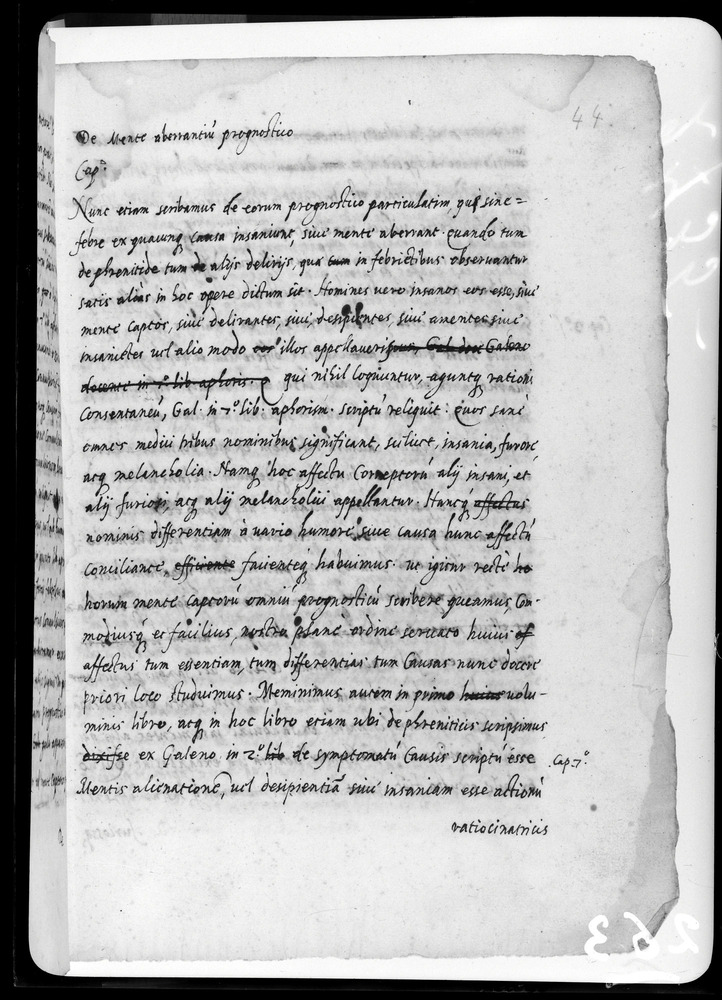 44
De Mente aberrantiũ prognostico
Cap.º
Nunc etiam scribamus de eorum prognostico particulatim, qui sine=
febre ex quacunq; causa insaniunt, siue mente aberrant. quando tum
de phrenitide tum de alijs delirijs, quæ tum in febricitibus obseruantur
satis aliàs in hoc opere dictum sit. Homines uero insanos eos esse, siue
mente captos, siue delirantes, siue desipientes, siue amentes siue
insanietes uel alio modo illos appellaueris Galeno
docente in 7.º lib. aphoris. qui nihil loquuntur, aguntq; rationi
Consentaneũ, Gal. in 7.º lib. aphorism. scriptũ reliquit. quos sanè
omnes medici tribus nominibus significant, scilicet, insania, furore
acq; melancholia. Namq; hoc affectu Correptorũ alij insani, et
alij furiosi, acq; alij melancholici appellantur. Huncq; affectus
nominis differentiam à uario humore siue causa hunc affectũ
Conciliante, efficiente facienteq; habuimus. ut igitur rectè ho
horum mente captorũ omniũ prognosticũ scribere queamus, Com-
modiusq; et facilius, nostro planè ordine seruato huius af
affectus tum essentiam, tum differentias tum Causas nunc docere
priori loco studuimus. Meminimus autem in primo huius uolu-
minis libro, acq; in hoc libro etiam ubi de phreniticis scripsimus
dixisse ex Galeno in 2.º lib de symptomatũ Causis scriptũ esse
Cap. 7.º
Mentis alienationẽ, uel desipientiã siue insaniam esse actionũ
ratiocinatricis
263